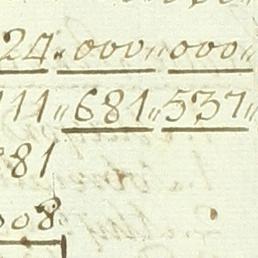 24„000„000„
11„681„537„
81
008